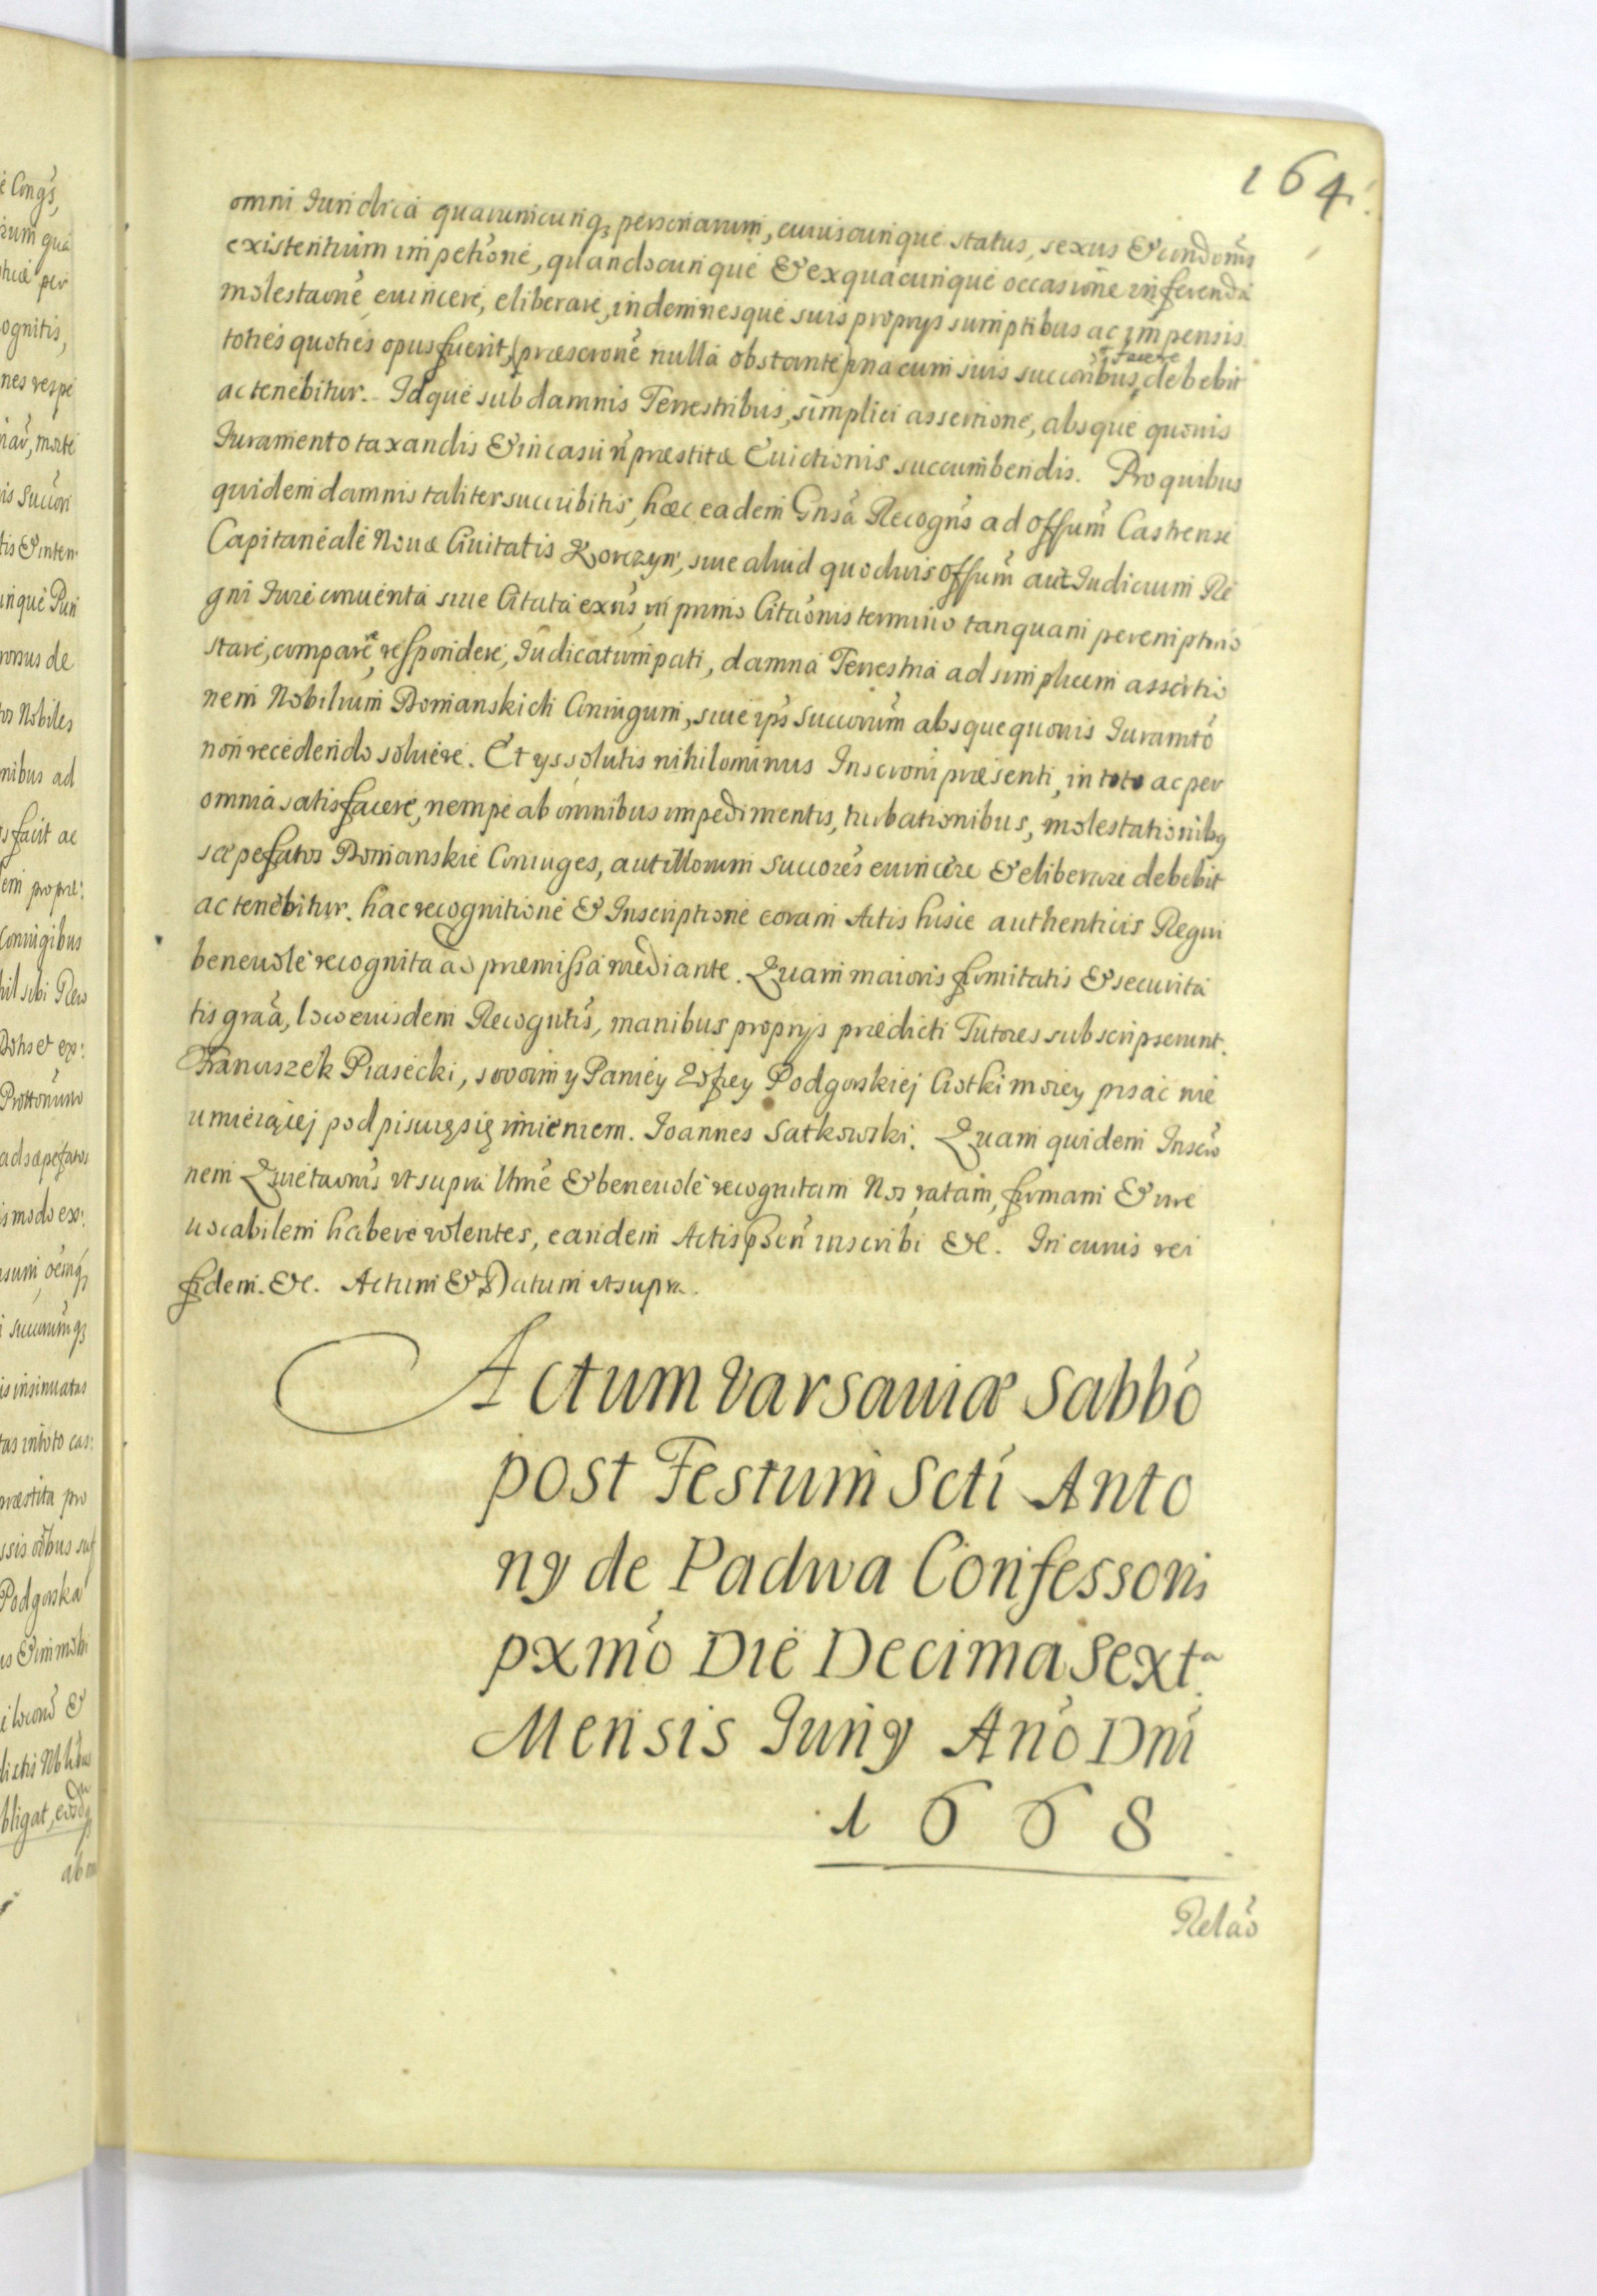 164.
omni Juridica quarumcunq₃ personarum, cuiuscunque status, sexus & condonis
existentium impetione, quandocunque & ex quacunque occasione inferenda
molestaone, euincere, eliberare, indemnesque suis proprys sumptibus ac impensis
toties quoties opus fuerit, (praescrone nulla obstante) una cum suis succoribus, facere debebit
ac tenebitur. Idque sub damnis Terrestribus, simplici assertione, absque quouis
Juramento taxandis & in casu n praestitae Euictionis succumbendis. Pro quibus
quidem damnis taliter succubitis, haec eadem Gnsa Recogns ad Offum Castrense
Capitaneale Nouae Ciuitatis Korczyn, siue aliud quoduis offum aut Judicium Re
gni Jure conuenta siue Citata exns, in primo Citaonis termino tanquam peremptorio
stare, comparere, respondere, Judicatum pati, damna Terrestria ad simplicem assertio
nem Nobilium Domanskich Coniugum, siue ips succorum absque quouis Juramto
non recedendo soluere. Et ys solutis nihilominus Inscroni praesenti, in toto ac per
omnia satisfacere, nempe ab omnibus impedimentis, turbationibus, molestationibq
saepefatos Domanskie Coniuges, aut illorum succores euincere & eliberare debebit
ac tenebitur. hac recognitione & Inscriptione coram Actis hisce authenticis Regni
beneuole recognita ad praemissa mediante. Quam maioris firmitatis & securita
tis graa, loco eiusdem Recogntis, manibus proprys praedicti Tutores subscripserunt.
Franciszek Piasecki, swoim y Paniey Zofiey Podgorskiej Ciotki moiey pisac nie
umieiącej podpisuię się imieniem. Joannes Satkowski. Quam quidem Inscro
nem Quietaonis ut supra Ume & beneuole recognitam Nos ratam, firmam & irre
uocabilem habere volentes, eandem Actis pscn inscribi &c. In cuius rei
fidem. &c. Actum & Datum ut supra.
Actum Varsauiae Sabbo
post Festum Scti Anto
ny de Padwa Confessoris
pxmo Die Decima Sexta
Mensis Juny Ano Dni
1668
Relao